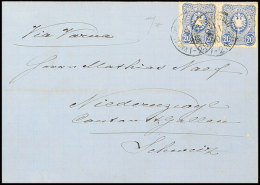 Via Varna
Herrn Mathias Naef
Niederuzwyl
Canton St Gallen
Schweiz